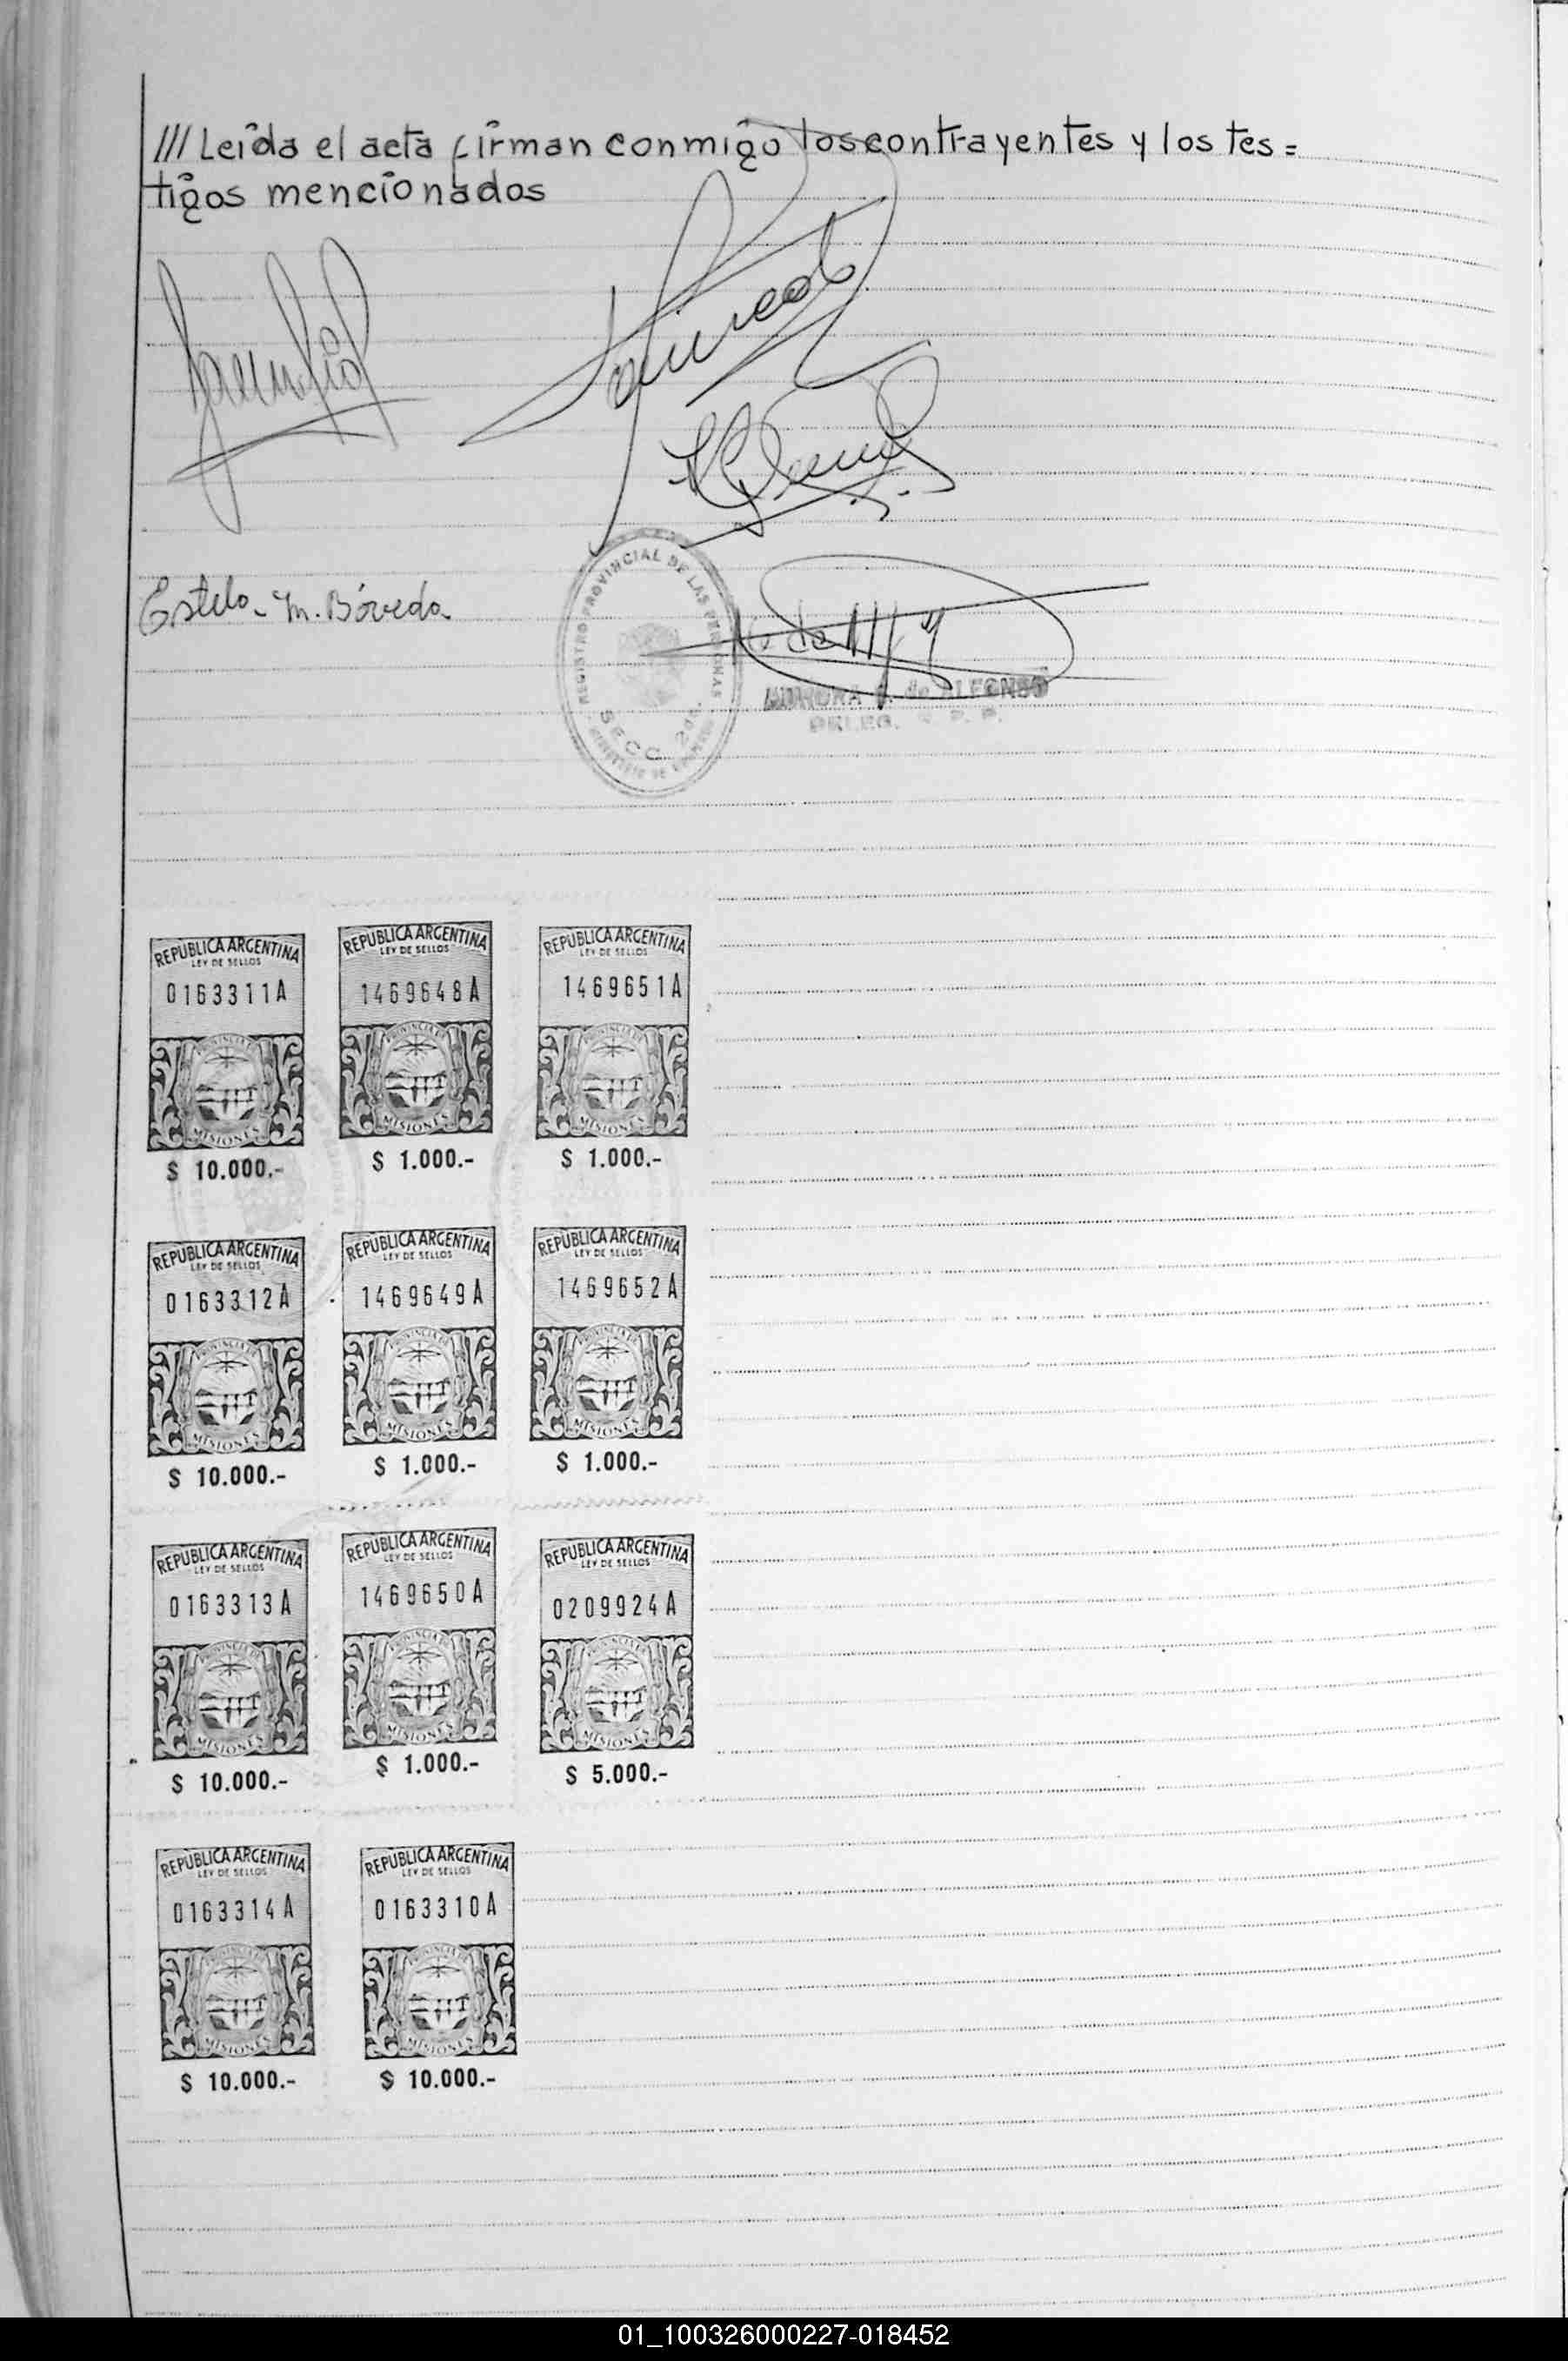 /// Leida el acta firman conmigo los contrayentes y los tes=
tigos mencionados
Estela M. Bóveda
REGISTRO PROVINCIAL DE LAS PERSONAS
SECC.
de ALFONSO
REPUBLICA ARGENTINA
LEY DE SELLOS
0163311A
MISIONES
$ 10.000.-
REPUBLICA ARGENTINA
LEY DE SELLOS
1469648A
MISIONES
$ 1.000.-
REPUBLICA ARGENTINA
LEY DE SELLOS
1469651A
MISIONES
$ 1.000.-
REPUBLICA ARGENTINA
LEY DE SELLOS
0163312A
MISIONES
$ 10.000.-
REPUBLICA ARGENTINA
LEY DE SELLOS
1469649A
MISIONES
$ 1.000.-
REPUBLICA ARGENTINA
LEY DE SELLOS
1469652A
MISIONES
$ 1.000.-
REPUBLICA ARGENTINA
LEY DE SELLOS
0163313A
MISIONES
$ 10.000.-
REPUBLICA ARGENTINA
LEY DE SELLOS
1469650A
MISIONES
$ 1.000.-
REPUBLICA ARGENTINA
LEY DE SELLOS
0209924A
MISIONES
$ 5.000.-
REPUBLICA ARGENTINA
LEY DE SELLOS
0163314A
MISIONES
$ 10.000.-
REPUBLICA ARGENTINA
LEY DE SELLOS
0163310A
MISIONES
$ 10.000.-
01_100326000227-018452